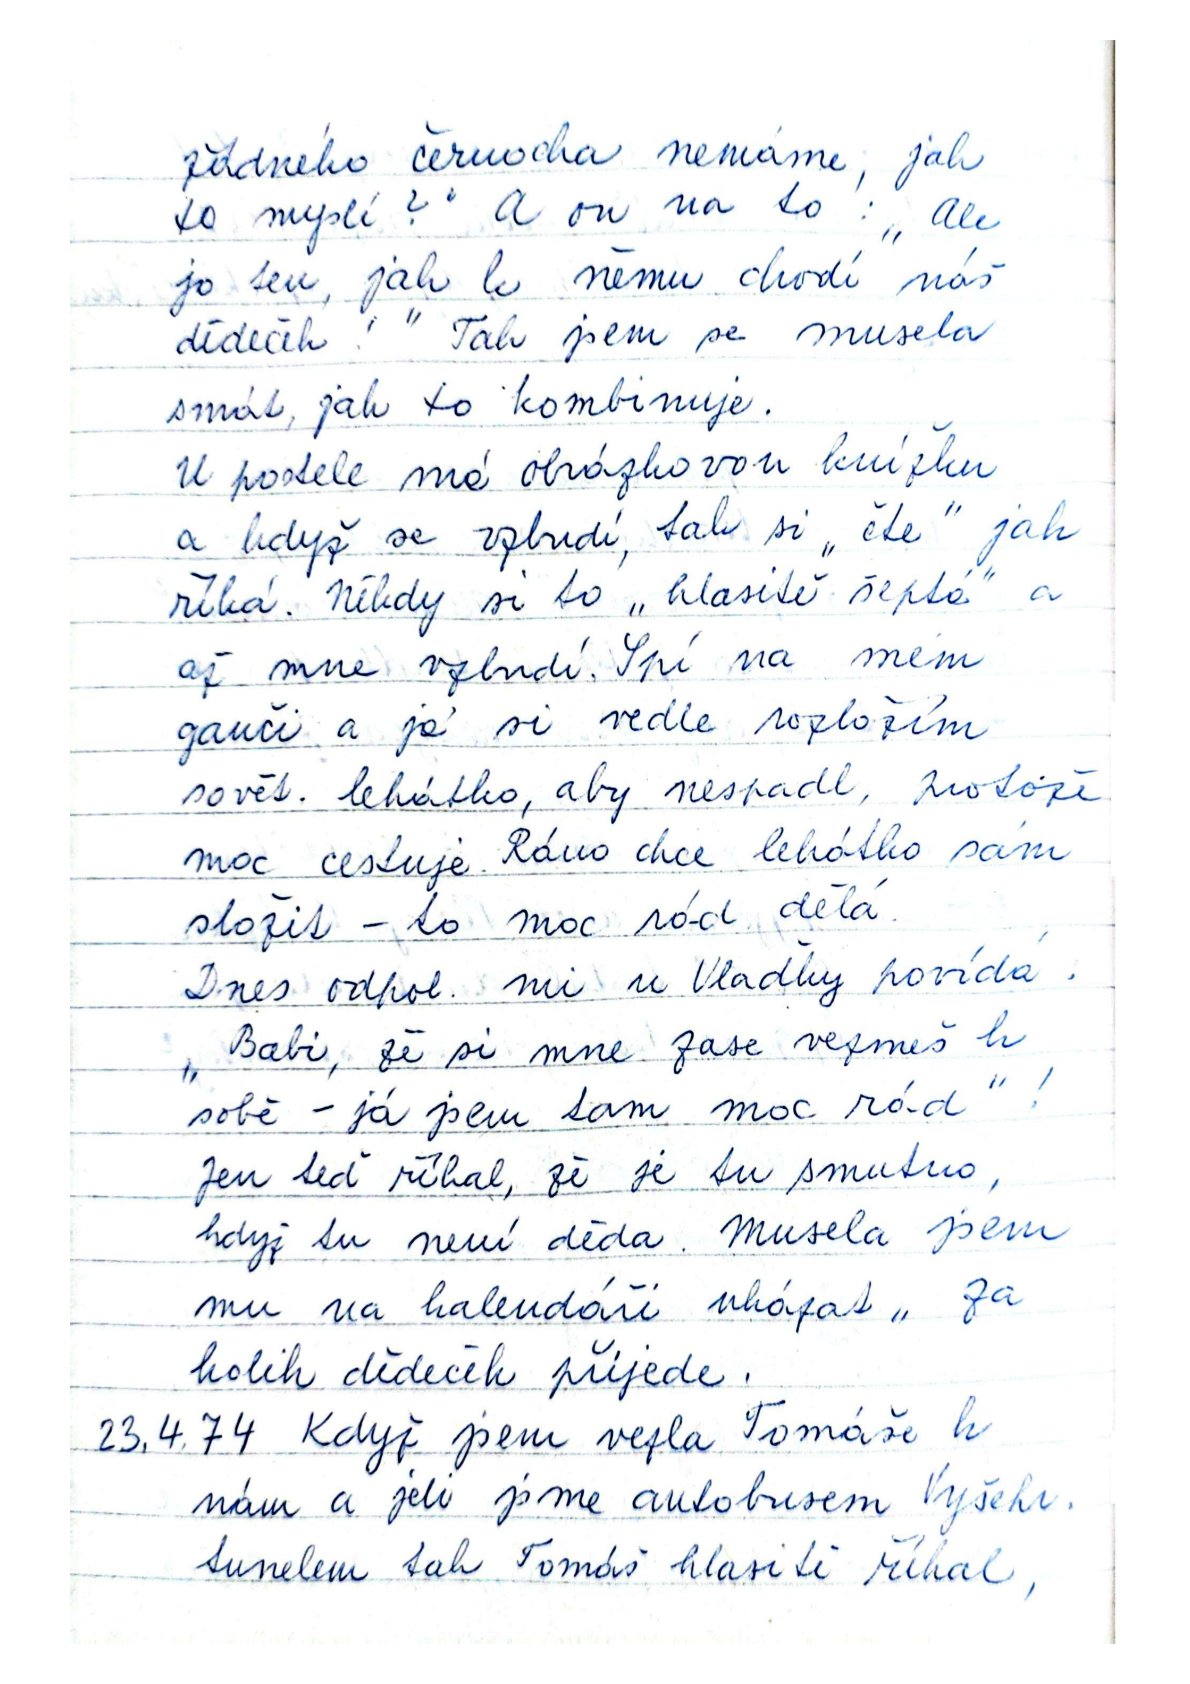 žádného černocha nemáme, jak
to myslí?" A on na to: „Ale
jo ten, jak k němu chodí náš
dědeček!" Tak jsem se musela
smát, jak to kombinuje.
U postele má obrázkovou knížku
a když se vzbudí, tak si „čte" jak
říká. Někdy si to „hlasitě šeptá" a
až mne vzbudí. Spí na mém
gauči a já si vedle rozložím
sovět. lehátko, aby nespadl, protože
moc cestuje. Ráno chce lehátko sám
složit – to moc rád dělá.
Dnes odpol. mi u Vlaďky povídá:
„Babi, že si mne zase vezmeš k
sobě – já jsem tam moc rád"!
Jen teď říkal, že je tu smutno,
když tu není děda. Musela jsem
mu na kalendáři ukázat „za
kolik dědeček přijede.
23.4.74 Když jsem vezla Tomáše k
nám a jeli jsme autobusem Vyšehr.
tunelem tak Tomáš hlasitě říkal,